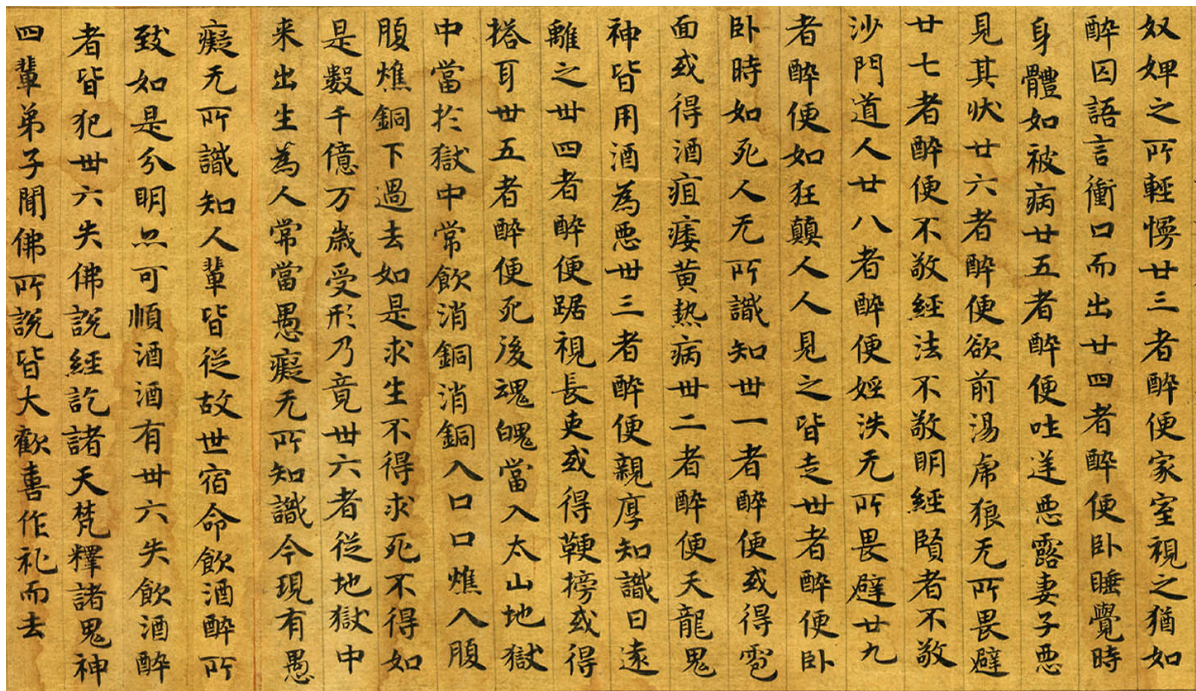 奴婢之所輕慢廿三者醉便家室視之猶如
醉囚語言衝口而出廿四者醉便卧睡覺時
身體如被病廿五者醉便吐逆惡露妻子惡
見其狀廿六者醉便欲前湯虎狼无所畏避
廿七者醉便不敬經法不敬明經賢者不敬
沙門道人廿八者醉便婬泆无所畏避廿九
者醉便如狂顛人人見之皆走卅者醉便卧
卧時如死人无所識知卅一者醉便或得皰
面或得酒疽痿黃热病卅二者醉便天龍鬼
神皆用酒為惡卅三者醉便親厚知識日遠
離之卅四者醉便踞視長吏或得鞭搒或得
搭耳卅五者醉便死後魂魄當入太山地獄
中當於獄中常飲消銅消銅入口口燋入腹
腹燋銅下過去如是求生不得求死不得如
是數千億万歲受形乃竟卅六者從地獄中
来出生為人常當愚癡无所知識今現有愚
癡无所識知人輩皆從故世宿命飲酒醉所
致如是分明亦可慎酒酒有卅六失飲酒醉
者皆犯卅六失佛說經訖諸天梵釋諸鬼神
四輩弟子聞佛所說皆大歡喜作礼而去